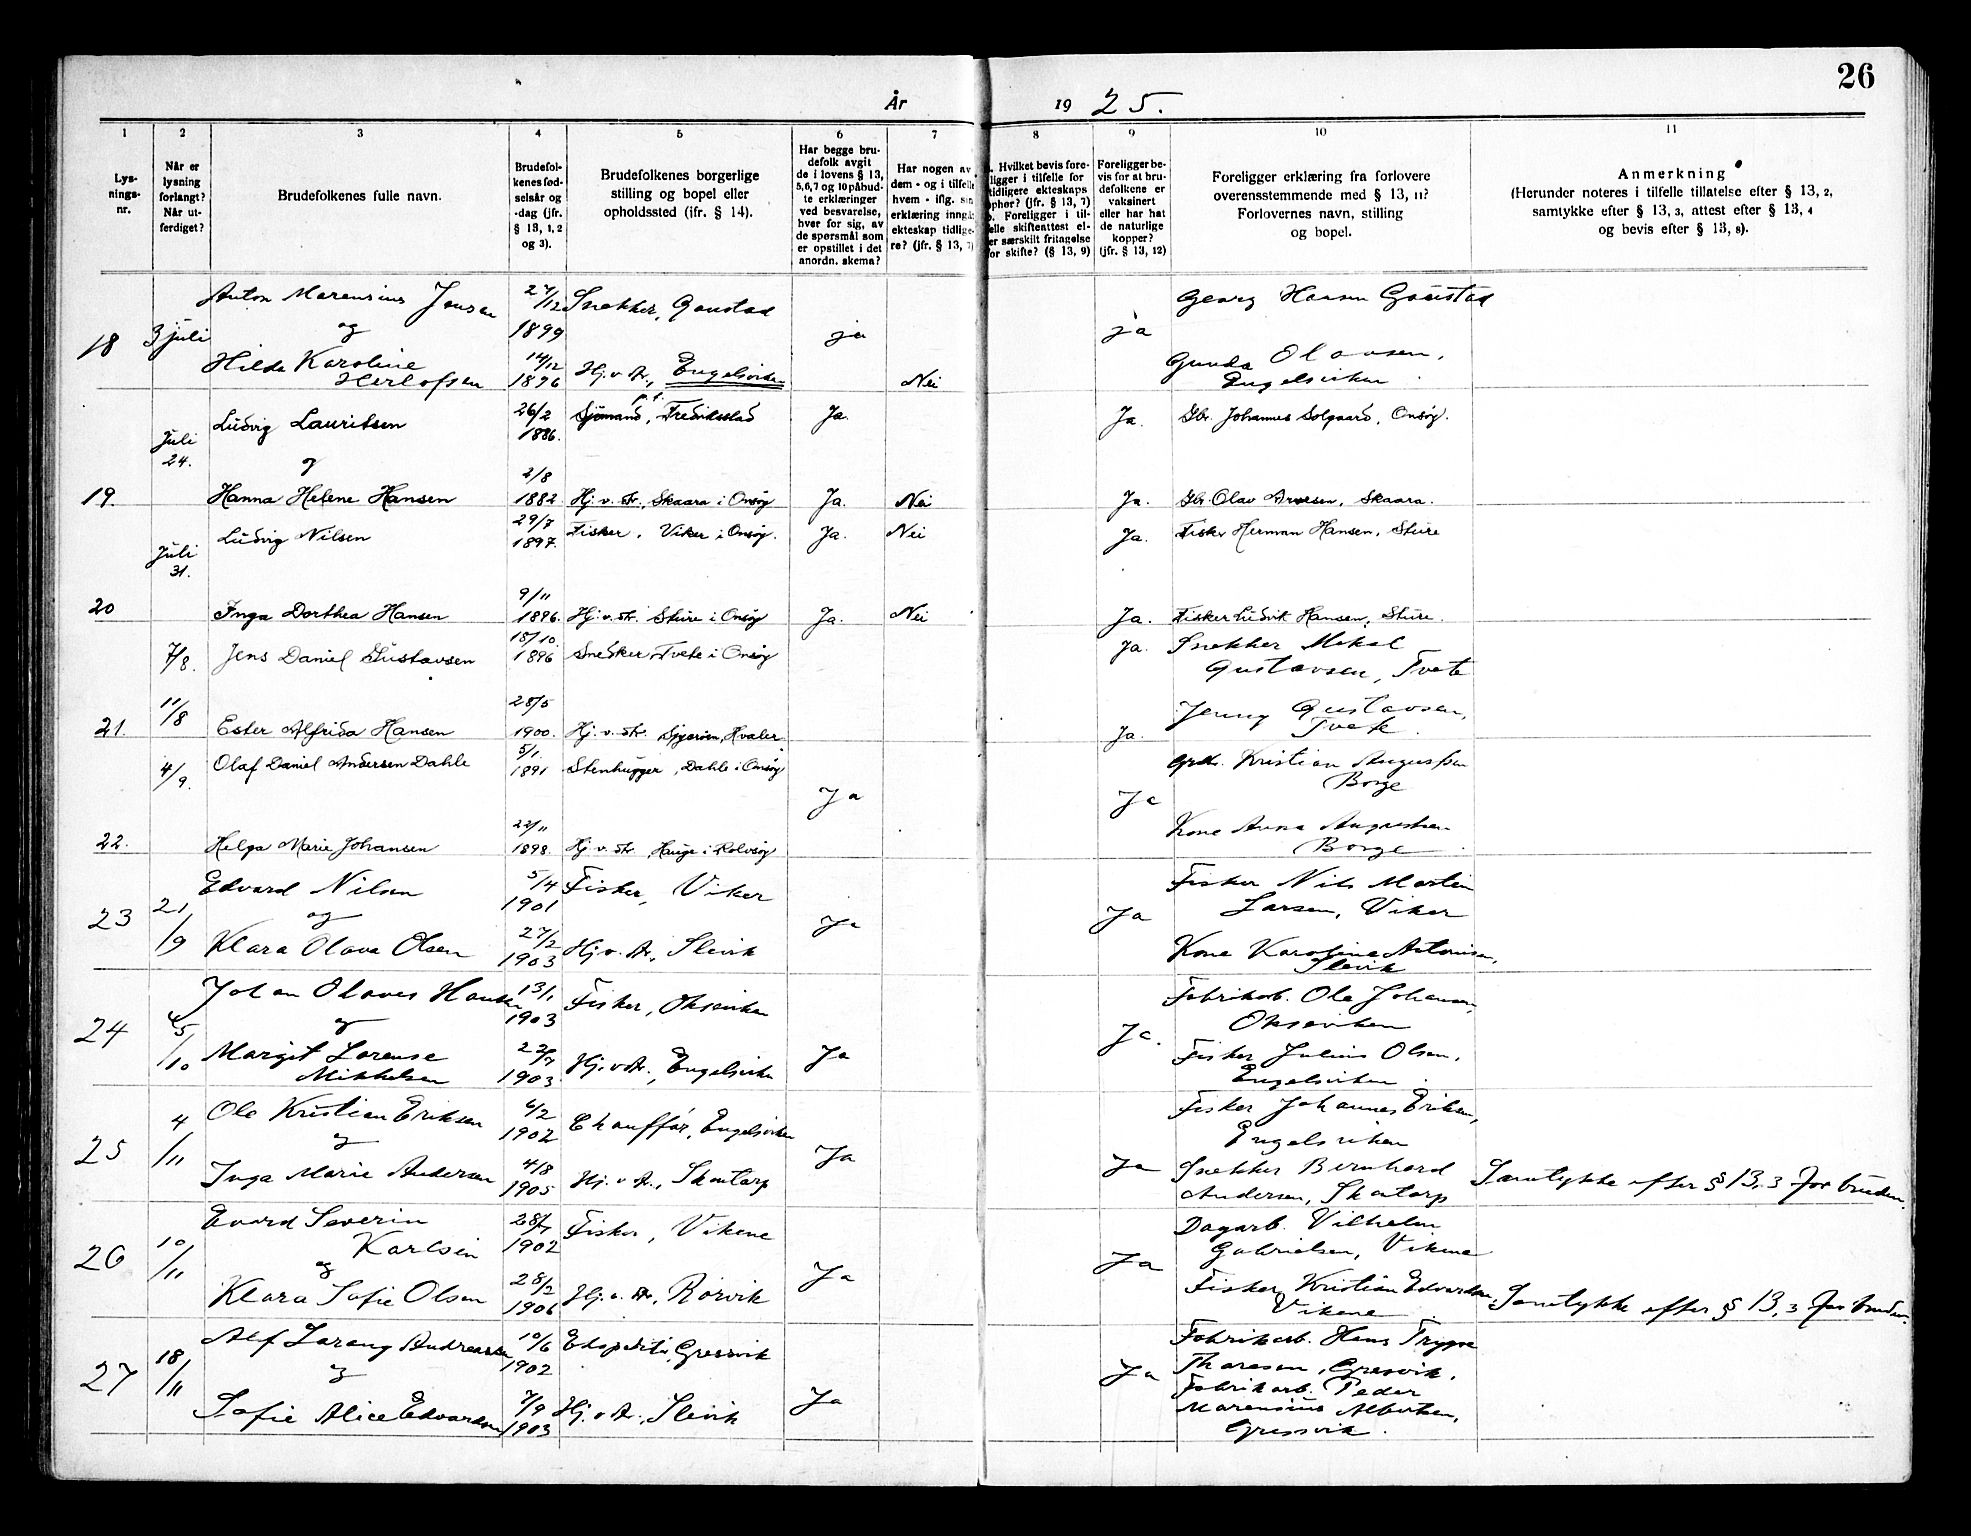 26
År 1925.
1 2 3 4 5 6 7 8 9 10 11
Lysnings-nr.
Når er lysning forlangt? Når utferdiget?
Brudefolkenes fulle navn.
Brudefolkenes fødselsår og -dag (jfr. § 13, 1, 2 og 3).
Brudefolkenes borgerlige stilling og bopel eller opholdssted (ifr. § 14).
Har begge brudefolk avgit de i lovens § 13, 5, 6, 7 og 10 påbudte erklæringer ved besvarelse, hver for sig, av de spørsmål som er opstillet i det anordn. skema?
Har nogen av dem - og i tilfelle hvem - iflg. sin erklæring inngåt ekteskap tidligere? (jfr. § 13, 7)
Hvilket bevis foreligger i tilfelle for tidligere ekteskaps ophør? (jfr. § 13, 7). b. Foreligger i tilfelle skifteattest eller særskilt fritagelse for skifte? (§ 13, 9)
Foreligger bevis for at brudefolkene er vaksinert eller har hat de naturlige kopper? (jfr. § 13, 12)
Foreligger erklæring fra forlovere overensstemmende med § 13, 11? Forlovernes navn, stilling og bopel.
Anmerkning
(Herunder noteres i tilfelle tillatelse efter § 13, 2, samtykke efter § 13, 3, attest efter § 13, 4 og bevis efter § 13, 8).
Anton Marensius Jensen 27/12 1899 Snekker, Gaustad ja ja Georg Hansen Gaustad
18 3 juli og
Hilda Karoline Herlofsen 14/12 1896 Hj. v. str., Engelsviken Nei Gunda Olavsen, Engelsviken.
Juli 24. Ludvig Lauritsen 26/2 1886. Sjømand, p.t. Fredriksstad Ja. Ja. Gbr. Johannes Solgaard, Onsøy.
og
19. Hanna Helene Hansen 2/8 1882 Hj. v. str., Skaara i Onsøy Ja. Nei Ja. Gbr. Olav Arnesen, Skaara.
Juli 31. Ludvig Nilsen 29/7 1897. Fisker, Viker i Onsøy. Ja. Nei Ja. Fisker Herman Hansen, Sture
20 Inga Dorthea Hansen 9/11 1896. Hj. v. str. Sture i Onsøy Ja. Nei Ja. Fisker Ludvik Hansen, Sture.
7/8. Jens Daniel Gustavsen 18/10. 1896 Snedker, Tvete i Onsøy Ja. Snekker Mikal Gustavsen, Tvete
21. 11/8 Ester Alfrida Hansen 28/5 1900. Hj. v. str. Kvaler. Ja. Jenny Gustavsen, Tvete.
4/9. Olaf Daniel Andersen Dahle 5/1. 1891 Stenhugger, Dahle i Onsøy Ja Ja Kristian Augustsen Borge
22. Helga Marie Johansen 22/11 1898. Hj. v. str. Hauge i Rolvsøy Kone Anna Augustsen Borge.
Edvard Nilsen 5/4 1901 Fisker, Viker Ja Ja Fisker Nils Martin Larsen, Viker
23 21/9 og
Klara Olava Olsen 27/2 1903 Hj. v. str., Slevik Kone Karoline Antonisen, Slevik
Johan Olaves Hansen 13/1 1903 Fisker, Okseviken Ja. Fabrikarb. Ole Johansen, Okseviken
24 /10 og
Margit Lorense Mikkelsen 1903 Hj. v. str., Engelsviken Ja Fisker Julius Olsen, Engelsviken.
Ole Kristian Eriksen /2 1902 Chauffør, Engelsviken Fisker Johannes Eriksen, Engelsviken
25 4/11 og Ja
Inga Marie Andersen 4/8 1905 Hj. v. str., Skontorp Ja Snekker Bernhard Andersen, Skontorp Samtykke efter § 13, 3 for bruden.
Evard Severin Karlsen 28/7 1902 Fisker, Vikene Dagarb. Vilhelm Gabrielsen, Vikene
26 10/11 og Ja Ja
Klara Sofie Olsen 28/2 1906 Hj. v. str., Rørvik Fisker Kristian Edvardsen, Vikene Samtykke efter § 13, 3 for bruden.
Alf Lorang Andreassen 10/6 1902 Ekspeditør, Gressvik Fabrikarb. Hans Trygve Thoresen, Gresvik.
27 18/11 og Ja
Sofie Alice Edvardsen 7/9 1903 Hj. v. str., Slevik Ja Fabrikarb. Peder Marensius Albertsen, Gressvik.